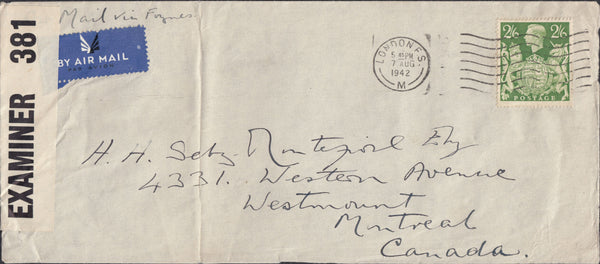 Mail via Foynes
BY AIR MAIL
PAR AVION
EXAMINER 381
LONDON F.S
5 45 PM
7 AUG
1942
M
2/6 2/6
POSTAGE
H. H. Esq
4331. Western Avenue
Westmount
Montreal
Canada.